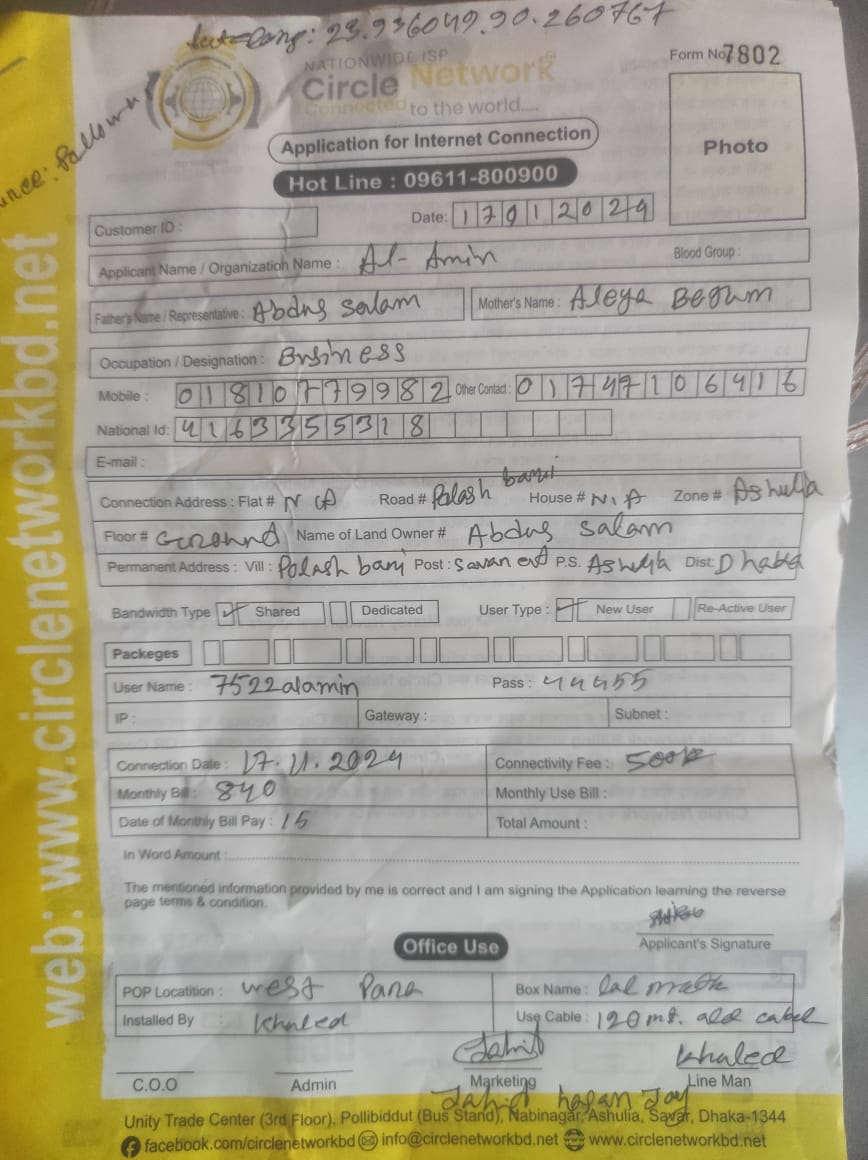 Lat-Long: 23.936049.90.260767
NATIONWIDE ISP
Circle Network
Connected to the world.....
Form No 7802
Photo
Application for Internet Connection
Hot Line : 09611-800900
Date: 17012024
Customer ID :
Applicant Name / Organization Name : Al-Amin Blood Group :
Father's Name / Representative : Abdus Salam Mother's Name : Aleya Begum
Occupation / Designation : Business
Mobile : 01810779982 Other Contact : 01747106416
National Id: 4163355318
E-mail :
Connection Address : Flat # N/A Road # Palash bari House # N.A Zone # Ashulia
Floor # Ground Name of Land Owner # Abdus Salam
Permanent Address : Vill : Polash bari Post : Savar P.S. Ashulia Dist: Dhaka
Bandwidth Type Shared Dedicated User Type : New User Re-Active User
Packeges
User Name : 7522alamin Pass : 44455
IP : Gateway : Subnet :
Connection Date : 17.11.2024 Connectivity Fee : 500tk
Monthly Bill : 840 Monthly Use Bill :
Date of Monthly Bill Pay : 15 Total Amount :
In Word Amount :
The mentioned information provided by me is correct and I am signing the Application learning the reverse
page terms & condition.
Applicant's Signature
Office Use
POP Locatition : west Para Box Name : lal
Installed By : Khaled Use Cable : 120 mt. old cabel
Khaled
C.O.O Admin Marketing Line Man
Jahid hasan Joy
Unity Trade Center (3rd Floor), Pollibiddut (Bus Stand), Nabinagar, Ashulia, Savar, Dhaka-1344
facebook.com/circlenetworkbd info@circlenetworkbd.net www.circlenetworkbd.net
web: www.circlenetworkbd.net